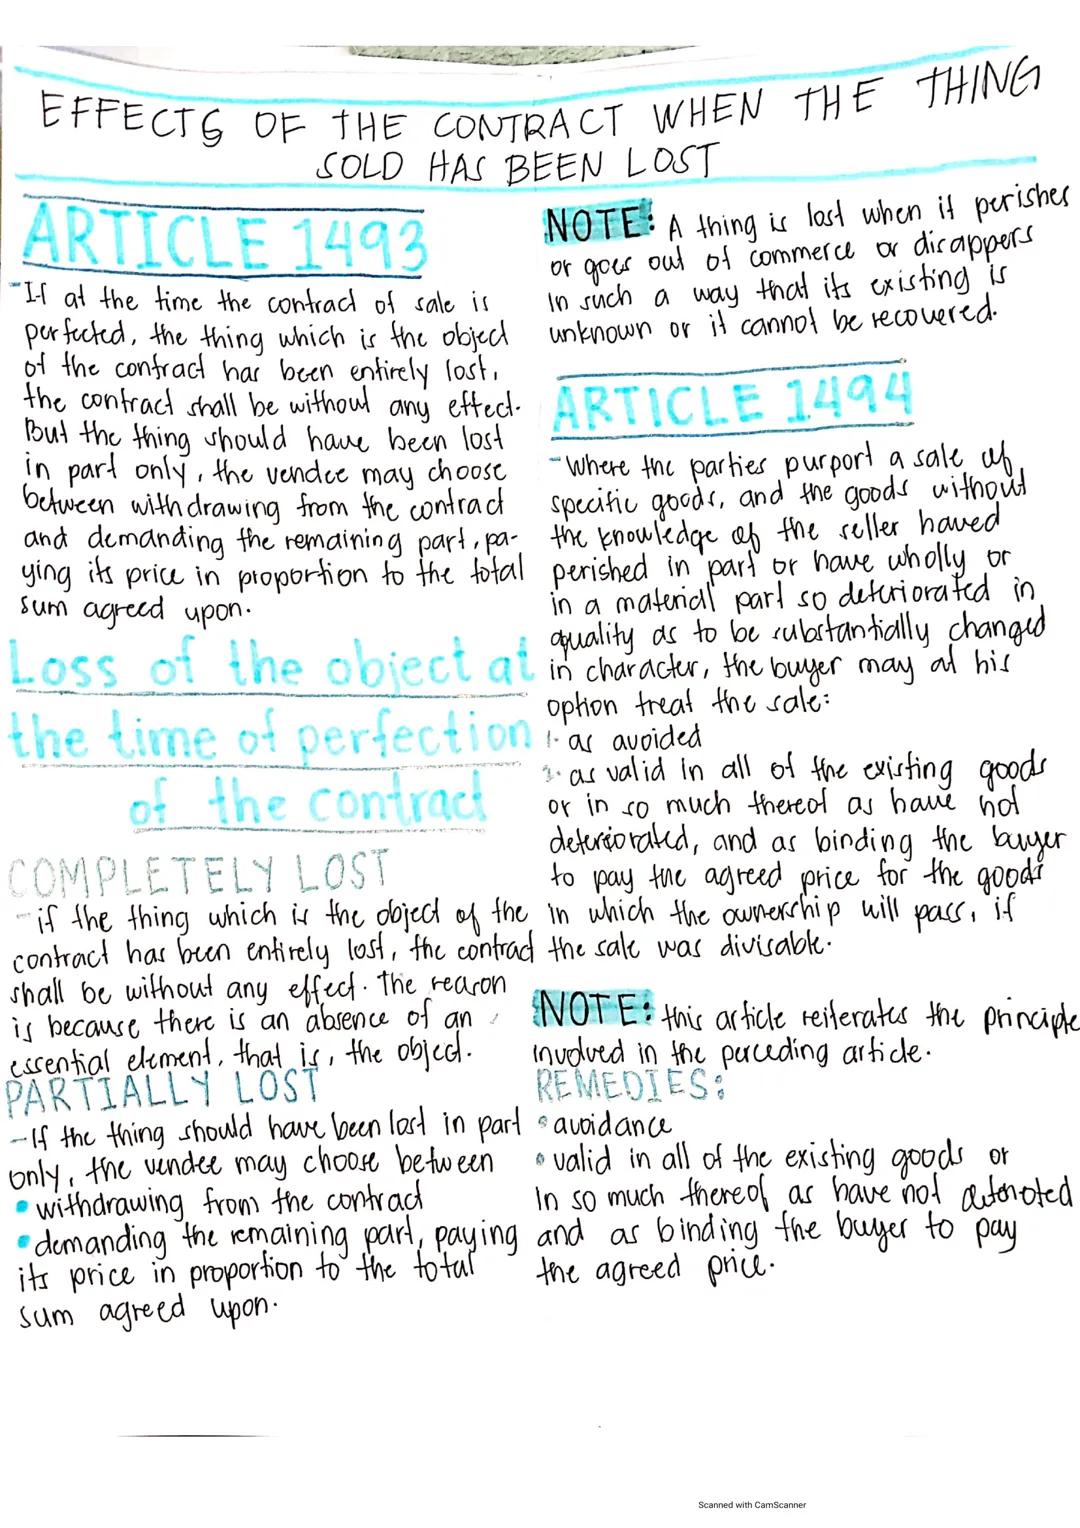 EFFECTS OF THE CONTRACT WHEN THE THING
SOLD HAS BEEN LOST
ARTICLE 1493
-If at the time the contract of sale is
perfected, the thing which is the object
of the contract has been entirely lost,
the contract shall be without any effect.
But the thing should have been lost
in part only, the vendee may choose
between withdrawing from the contract
and demanding the remaining part, pa-
ying its price in proportion to the total
sum agreed upon.
Loss of the object at
the time of perfection
of the contract
COMPLETELY LOST
-if the thing which is the object of the
contract has been entirely lost, the contract
shall be without any effect. The reason
is because there is an absence of an
essential element, that is, the object.
PARTIALLY LOST
-If the thing should have been lost in part
only, the vendee may choose between
• withdrawing from the contract
• demanding the remaining part, paying
its price in proportion to the total
sum agreed upon.
NOTE: A thing is lost when it perishes
or goes out of commerce or disappers
in such a way that its existing is
unknown or it cannot be recovered.
ARTICLE 1494
-Where the parties purport a sale of
specific goods, and the goods without
the knowledge of the seller haved
perished in part or have wholly or
in a material part so deteriorated in
quality as to be substantially changed
in character, the buyer may at his
option treat the sale:
1. as avoided
2. as valid in all of the existing goods
or in so much thereof as have not
deteriorated, and as binding the buyer
to pay the agreed price for the goods
in which the ownership will pass, if
the sale was divisable.
NOTE: this article reiterates the principle
involved in the perceding article.
REMEDIES:
• avoidance
• valid in all of the existing goods or
in so much thereof as have not
and as binding the buyer to pay
the agreed price.
Scanned with CamScanner